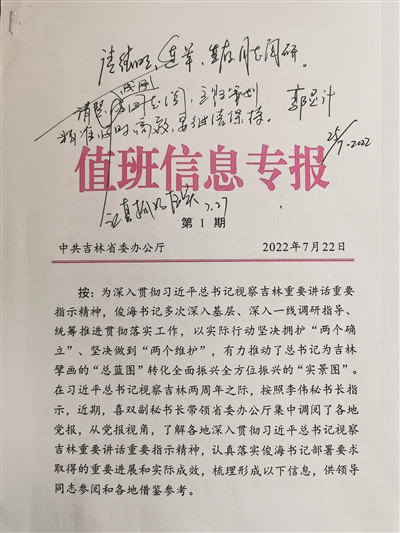 请 连军、 同志阅研。
请 同志阅,
精准 高效, 要继续保持。
25/7.2022
值班信息专报
认真抓好落实 7.27
第 1 期
中共吉林省委办公厅 2022年7月22日
按:为深入贯彻习近平总书记视察吉林重要讲话重要
指示精神，俊海书记多次深入基层、深入一线调研指导、
统筹推进贯彻落实工作，以实际行动坚决拥护“两个确
立”、坚决做到“两个维护”，有力推动了总书记为吉林
擘画的“总蓝图”转化全面振兴全方位振兴的“实景图”。
在习近平总书记视察吉林两周年之际，按照李伟秘书长指
示，近期，喜双副秘书长带领省委办公厅集中调阅了各地
党报，从党报视角，了解各地深入贯彻习近平总书记视察
吉林重要讲话重要指示精神，认真落实俊海书记部署要求
取得的重要进展和实际成效，梳理形成以下信息，供领导
同志参阅和各地借鉴参考。